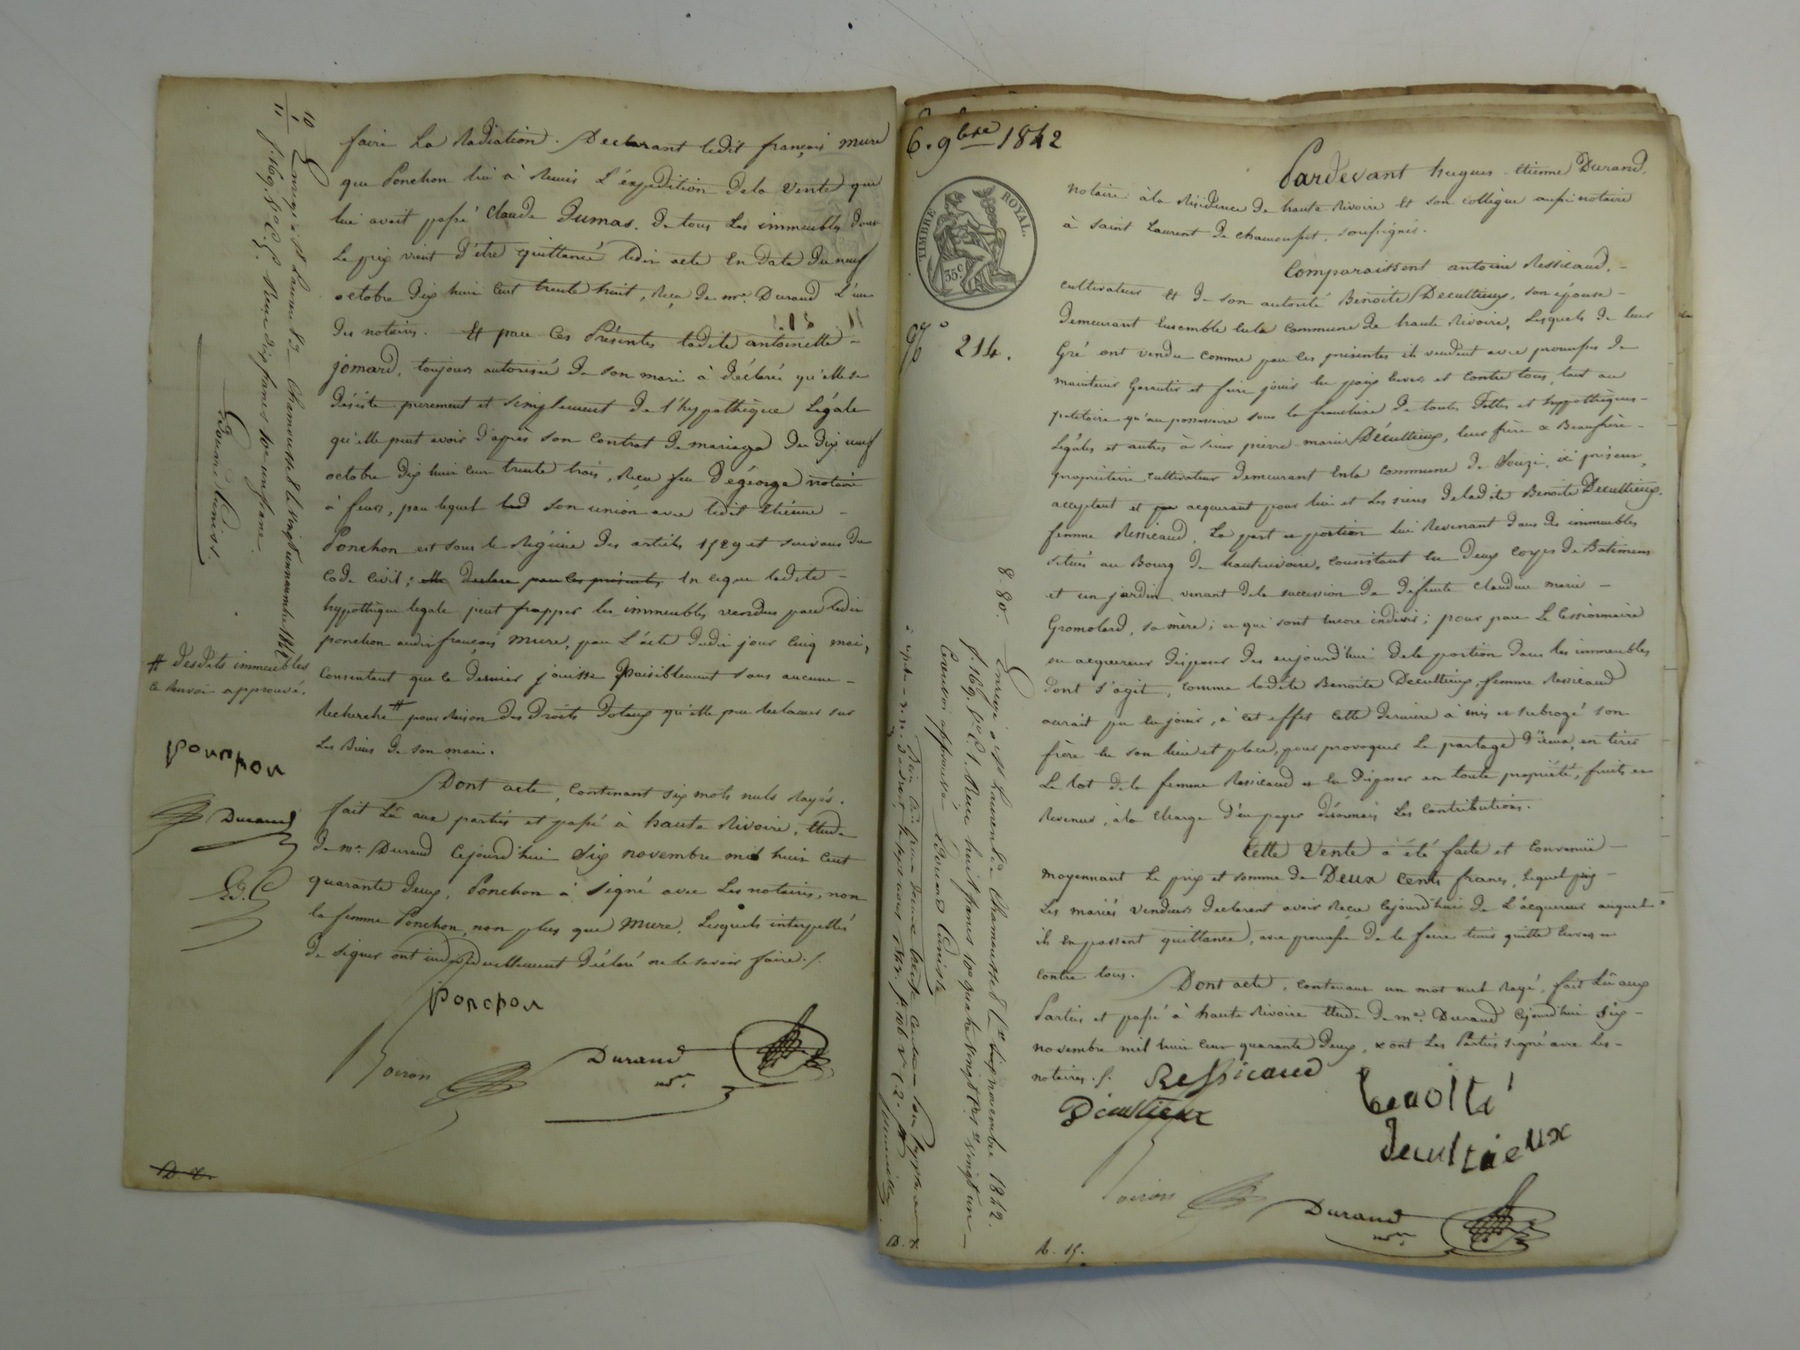 faire La Radiation. Declarant ledit françois mure
que Ponchon lui à Remis L'expédition dela vente que
lui avait passé Claude Dumas. de tous Les immeubles dont
Le prix vient d'être quittancé ledit acte En date du neuf
octobre dix huit cent trente huit, reçu de me. Durand L'un
des notaires. Et par Ces Présentes ladite antoinette -
jomard, toujours autorisée de son mari à déclaré qu'elle se
désiste purement et simplement de l'hypothèque Légale
qu'elle peut avoir d'après son Contrat de mariage du dix neuf
octobre dix huit cent trente trois, Reçu feu dégeorge notaire
à feurs, par lequel son union avec ledit étienne -
Ponchon est sous le Régime des articles 1529 et suivans du
Code Civil; elle declare par les présentes En ce que ladite -
hypothèque legale peut frapper les immeubles vendus par ledit
ponchon audit françois mure, par L'acte dudit jour cinq mai,
Consentant que ce dernier jouisse paisiblement sans aucune -
Recherche # pour Raison des Droits Dotaux qu'elle peu Reclamer sur
Les Biens de son mari.
Dont acte, Contenant six mots nuls Rayés.
fait Lû aux parties et passé à haute Rivoire, Etude
de me. Durand Cejourd'hui Six novembre mil huit cent
quarante deux; Ponchon à signé avec Les notaires, non
la femme Ponchon, non plus que Mure, Lesquels interpellés
de signer ont individuellement déclaré ne le savoir faire ./.
# desdits immeubles
ce Renvoi approuvé.
ponchon
Durand
ponchon
Voiron
Durand
nre.
D. D.
6. 9bre 1842
TIMBRE ROYAL.
35c
No 214.
Pardevant hugues-étienne Durand,
notaire à la Résidence de haute Rivoire et son collègue aussi notaire
à Saint Laurent de chamousset, soussignés.
Comparaissent antoine Ressicaud, -
cultivateur et de son autorité Benoîte Decultieux, son épouse -
demeurant Ensemble En la Commune de haute Rivoire, Lesquels de leur
Gré ont vendu comme par ces présentes ils vendent avec promesse de
maintenir Garantir et faire jouir les paix envers et contre tous, tant au
petitoire qu'au possessoire sous la franchise de toutes Dettes et hypothèques -
Légales et autres à sieur pierre-marie Décultieux, leur frère & Beaufrère -
propriétaire cultivateur demeurant En la commune de Souzi, ici présent,
acceptant et acquérant pour lui et Les siens de ladite Benoite Decultieux,
femme Ressicaud, La part et portion lui Revenant dans des immeubles
situés au Bourg de hauterivoire, Consistant En deux Corps de Batimens
et un jardin venant dela succession de défunte Claudine marie -
Gromolard, sa mère; ce qui sont Encore indivis; pour par Le Cessionnaire
ou acquereur disposer dès aujourd'hui dela portion dans les immeubles
dont s'agit, Comme ladite Benoite Decultieux, femme Ressicaud
aurait pu En jouir, à cet effet cette derniere à mis et subrogé son
frère En son lieu et place, pour provoquer Le partage d'iceux, en tirer
Le lot de la femme Ressicaud et En disposer en toute propriété, fruits et
Revenus, à la Charge d'en payer désormais Les Contributions.
Cette Vente à été faite et Convenüe -
moyennant Le prix et somme de Deux Cents francs, Lequel prix -
Les mariés vendeurs déclarent avoir Reçu Cejourd'hui de L'acquereur auquel
ils En passent quittance, avec promesse de le faire tenir quitte Envers et
Contre tous. Dont acte, contenant un mot nul Rayé, fait Lû aux
Parties et passé à haute Rivoire Etude de me. Durand Cejourd'hui Six -
novembre mil huit cent quarante Deux, & ont Les Parties signé avec Les -
notaires ./. Ressicaud
Benoîte
Décultieux
Decultieux
Voiron
Durand
nre.
8. 80.
Enregé à st Laurent de Chamousset Le dix novembre 1842.
D. D.
R. 15.